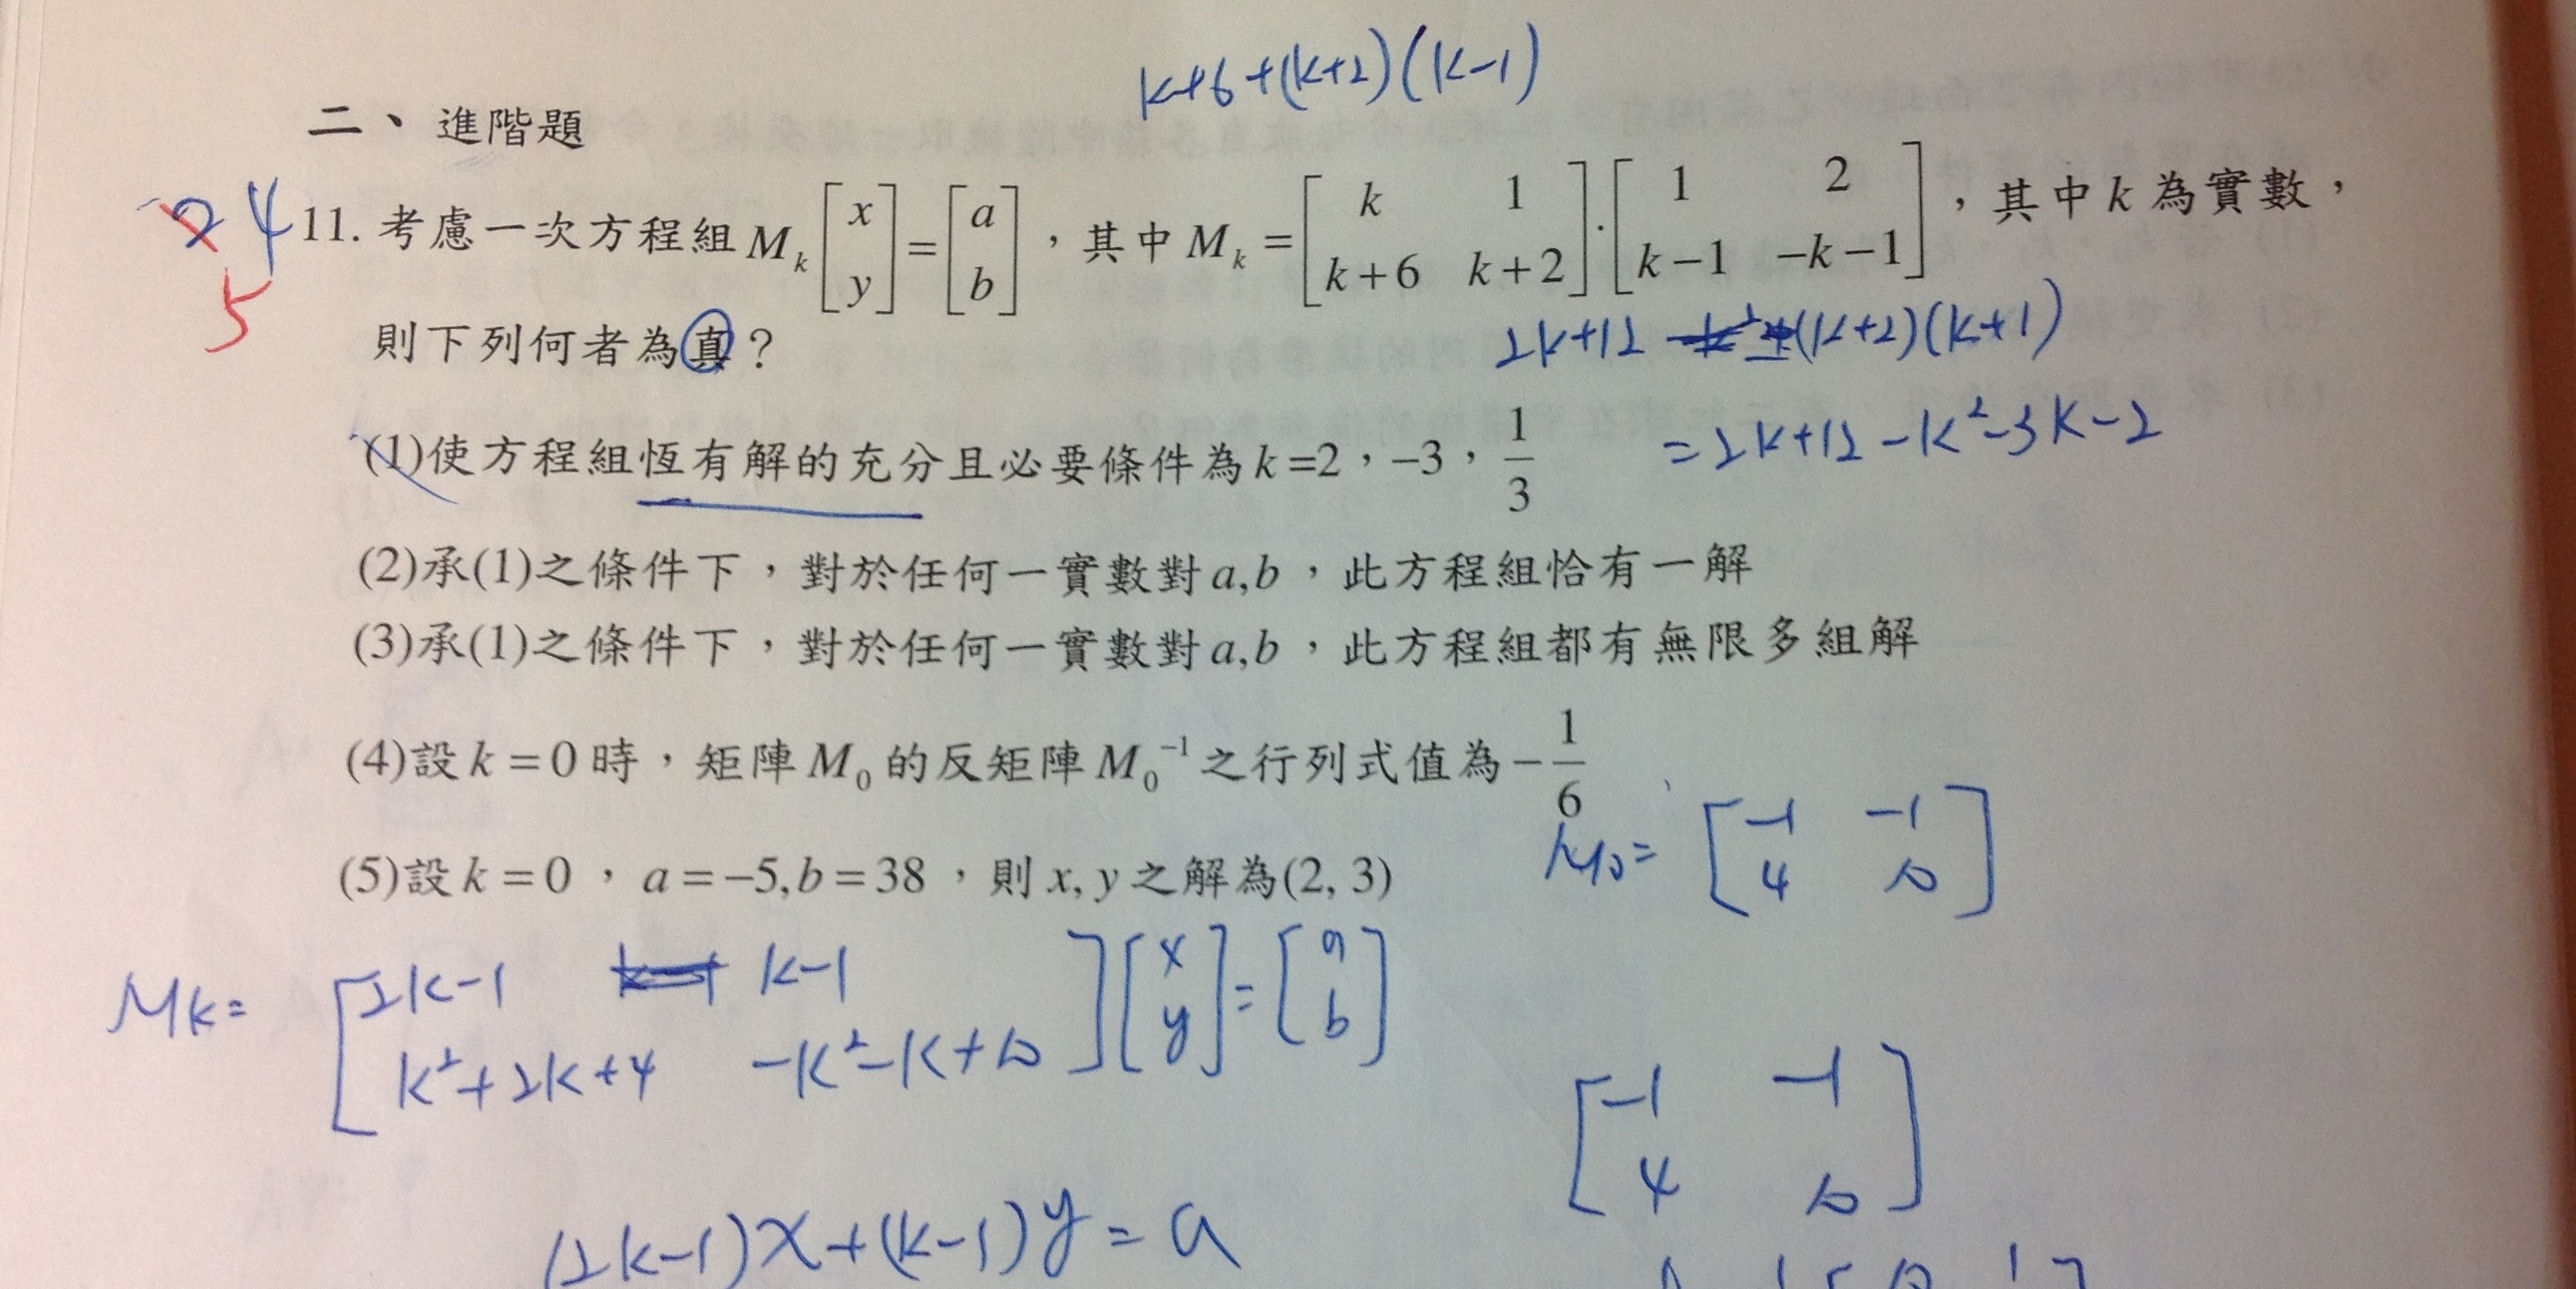 k+6+(k+2)(k-1)
二、進階題
2 4
5
11. 考慮一次方程組 M_k [x; y] = [a; b],其中 M_k = [k 1; k+6 k+2]·[1 2; k-1 -k-1],其中 k 為實數,
則下列何者為真?
2k+12 -(k+2)(k+1)
(1)使方程組恆有解的充分且必要條件為 k=2,-3,1/3
=2k+12-k²-3k-2
(2)承(1)之條件下,對於任何一實數對 a,b,此方程組恰有一解
(3)承(1)之條件下,對於任何一實數對 a,b,此方程組都有無限多組解
(4)設 k=0 時,矩陣 M₀ 的反矩陣 M₀⁻¹ 之行列式值為 -1/6
M0= [-1 -1; 4 10]
(5)設 k=0,a=-5,b=38,則 x,y 之解為(2, 3)
Mk= [2k-1 k-1; k²+2k+4 -k²-k+10] [x; y] = [a; b]
[-1 -1; 4 10]
(2k-1)x+(k-1)y=a